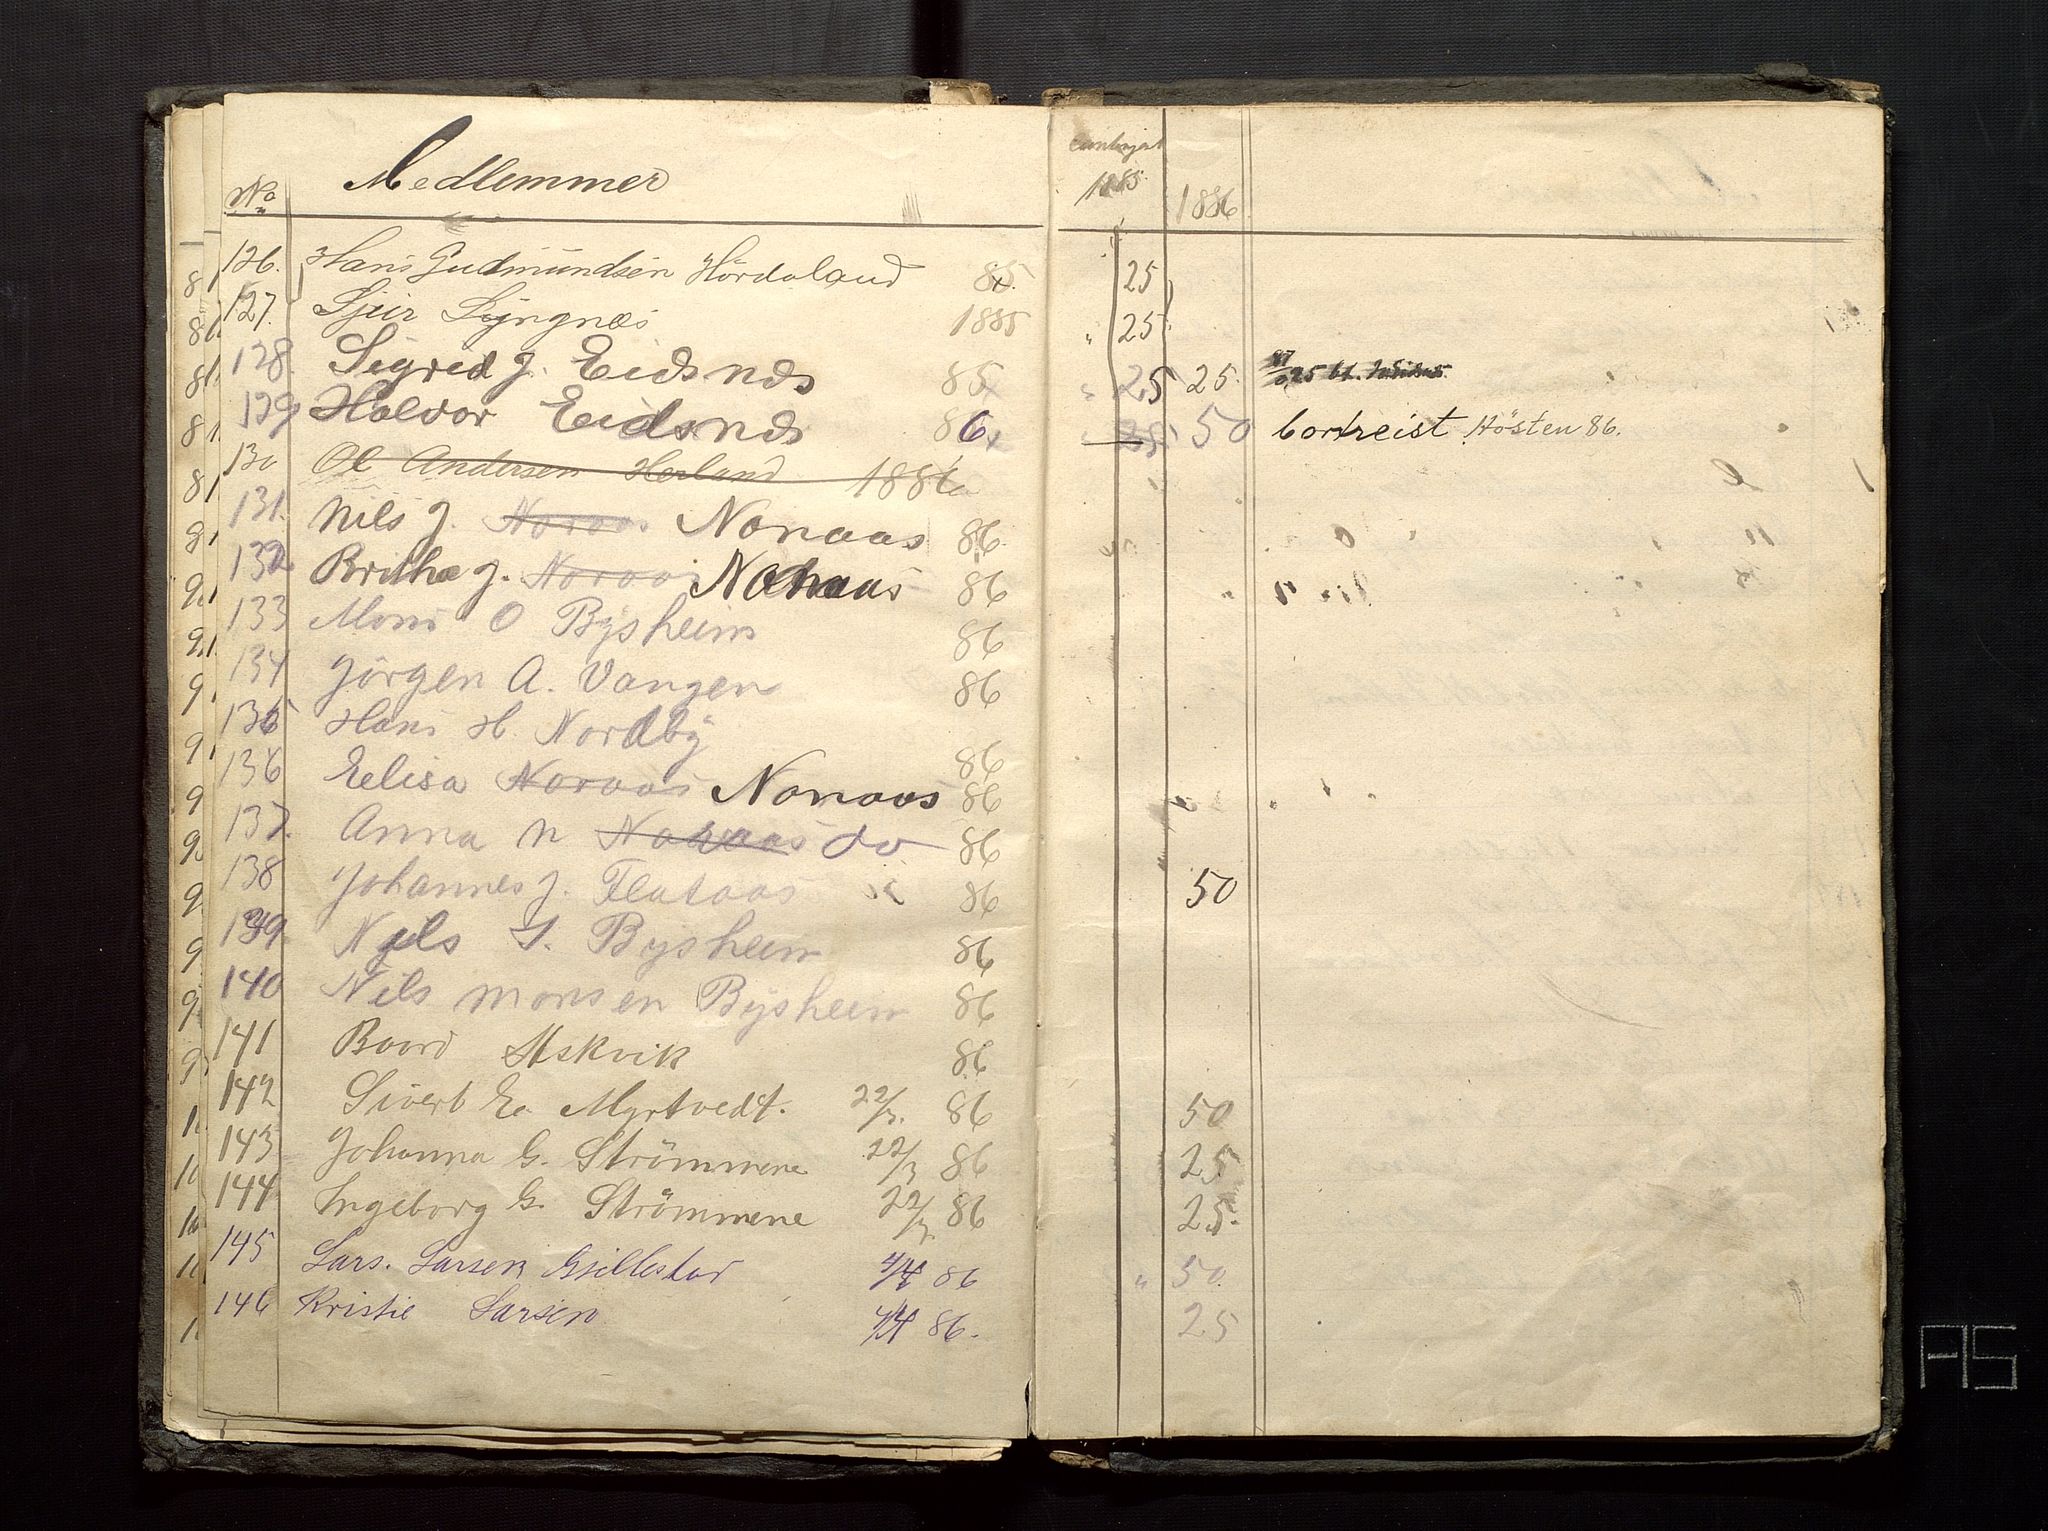 No Medlemmer
126. Hans Gudmundsen Hördaland 85
127. Sjur Lyngnæs 1885
128. Sigred J. Eidsnæs 85
129 Halvor Eidsnæs 86
130 Ol Andersen Herland 1886
131. Nils J. Noraas Nonaas 86
132 Britha J. Noraas Nonaas 86
133 Mons O Bysheim 86
134 Jörgen A. Vangen 86
135 Hans H. Nordby 86
136 Eelisa Noraas Nonaas 86
137. Anna N Noraas do 86
138 Johannes J. Flataas 86
139 Nels S. Bysheim 86
140 Nils Monsen Bysheim 86
141 Baard Askvik 86
142 Sivert E. Myrtvedt. 22/3. 86
143 Johanna G. Strömmene 22/3 86
144 Ingeborg G. Strömmene 22/3 86
145 Lars. Larsen Gjillestad 4/4 86
146 Kristie Larsen 4/4 86.
1885 1886
25
" 25
" 25 25. 25
25 50 bortreist Hösten 86.
50
50
25
25.
" 50.
25
AS